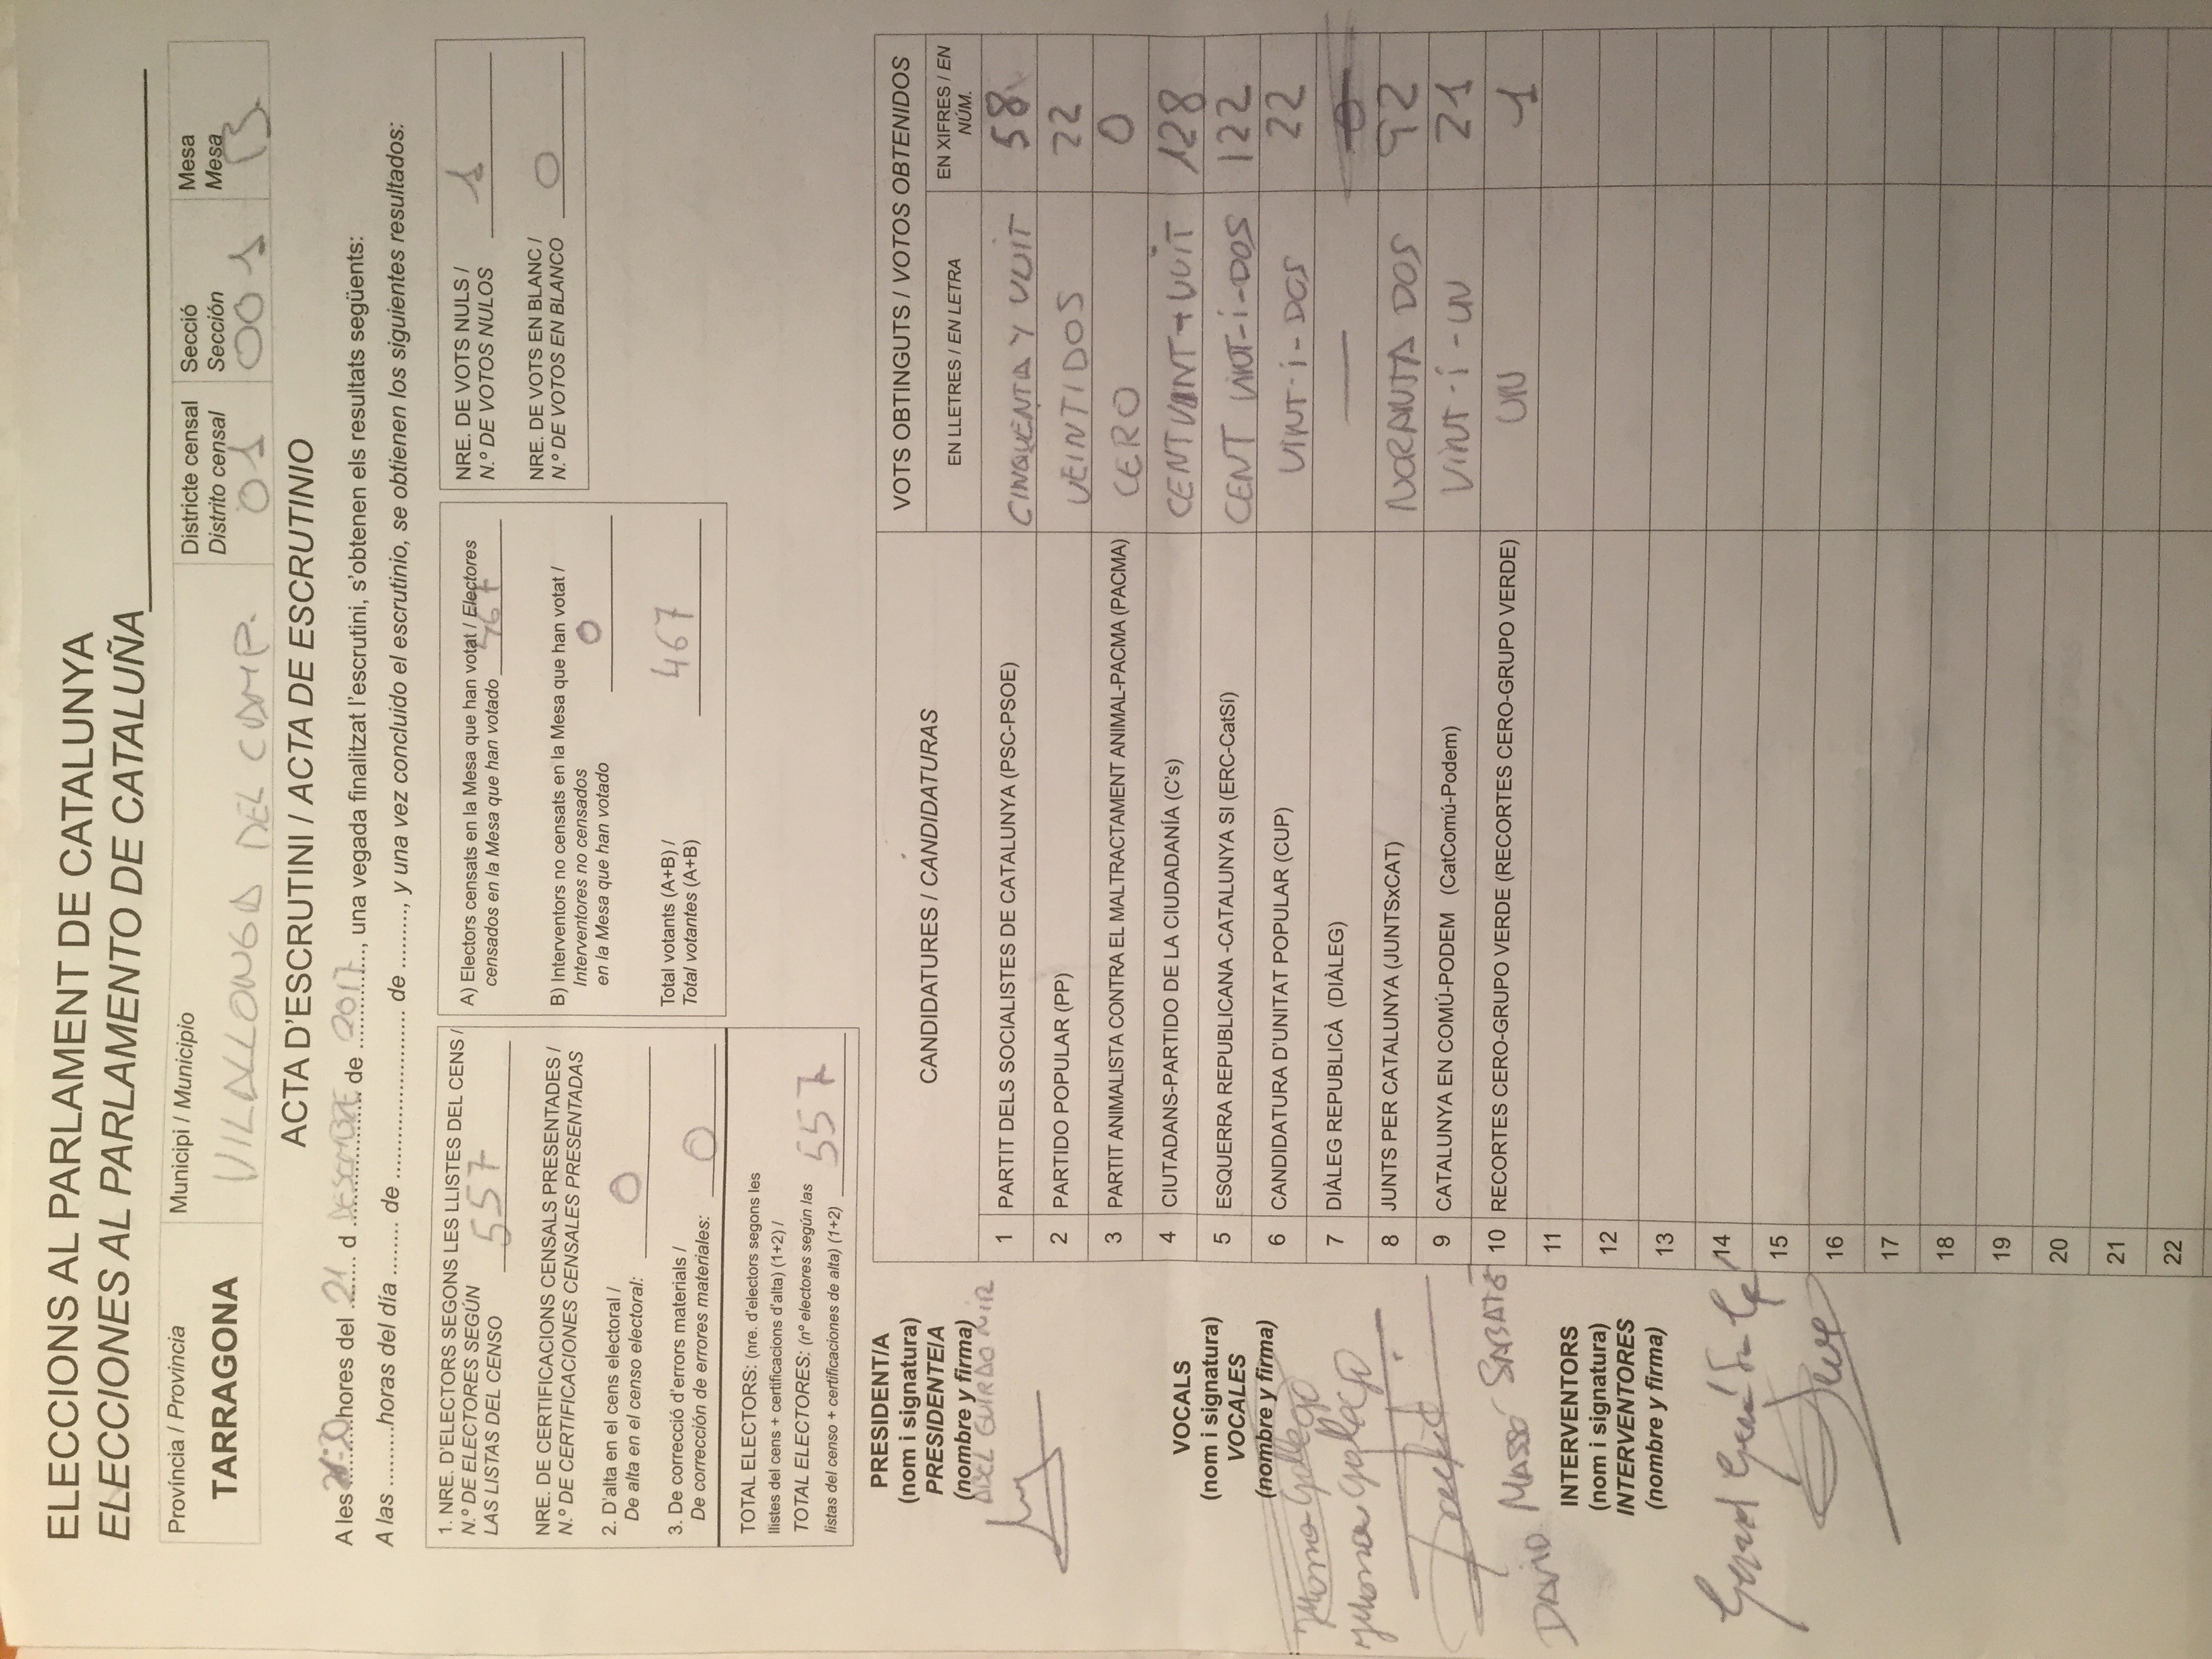 ELECCIONS AL PARLAMENT DE CATALUNYA
ELECCIONES AL PARLAMENTO DE CATALUÑA
Província / Provincia
TARRAGONA
Municipi / Municipio
VILALLONGA DEL CAMP.
Districte censal
Distrito censal
01
Secció
Sección
001
Mesa
Mesa
B
ACTA D'ESCRUTINI / ACTA DE ESCRUTINIO
A les 21:30 hores del 21 d DESEMBRE de 2017, una vegada finalitzat l'escrutini, s'obtenen els resultats següents:
A las .........horas del día ........ de ......................... de ........., y una vez concluido el escrutinio, se obtienen los siguientes resultados:
1. NRE. D'ELECTORS SEGONS LES LLISTES DEL CENS /
N.º DE ELECTORES SEGÚN
LAS LISTAS DEL CENSO 557
NRE. DE CERTIFICACIONS CENSALS PRESENTADES /
N.º DE CERTIFICACIONES CENSALES PRESENTADAS
2. D'alta en el cens electoral /
De alta en el censo electoral: 0
3. De correcció d'errors materials /
De corrección de errores materiales: 0
TOTAL ELECTORS: (nre. d'electors segons les
llistes del cens + certificacions d'alta) (1+2) /
TOTAL ELECTORES: (nº electores según las
listas del censo + certificaciones de alta) (1+2) 557
A) Electors censats en la Mesa que han votat / Electores
censados en la Mesa que han votado 467
B) Interventors no censats en la Mesa que han votat /
Interventores no censados
en la Mesa que han votado 0
Total votants (A+B) /
Total votantes (A+B) 467
NRE. DE VOTS NULS /
N.º DE VOTOS NULOS 1
NRE. DE VOTS EN BLANC /
N.º DE VOTOS EN BLANCO 0
PRESIDENT/A
(nom i signatura)
PRESIDENTE/A
(nombre y firma)
ABEL GUIRAO MIR
VOCALS
(nom i signatura)
VOCALES
(nombre y firma)
Gallego
Gallego
David
DAVID MASSÓ SABATÉ
INTERVENTORS
(nom i signatura)
INTERVENTORES
(nombre y firma)
Gerard
CANDIDATURES / CANDIDATURAS
VOTS OBTINGUTS / VOTOS OBTENIDOS
EN LLETRES / EN LETRA
EN XIFRES / EN
NÚM.
1 PARTIT DELS SOCIALISTES DE CATALUNYA (PSC-PSOE) CINQUENTA Y VUIT 58
2 PARTIDO POPULAR (PP) VEINTIDOS 22
3 PARTIT ANIMALISTA CONTRA EL MALTRACTAMENT ANIMAL-PACMA (PACMA) CERO 0
4 CIUTADANS-PARTIDO DE LA CIUDADANÍA (C's) CENT VINT + VUIT 128
5 ESQUERRA REPUBLICANA -CATALUNYA SI (ERC-CatSí) CENT VINT-i-DOS 122
6 CANDIDATURA D'UNITAT POPULAR (CUP) VINT-i-DOS 22
7 DIÀLEG REPUBLICÀ (DIÀLEG) — 0
8 JUNTS PER CATALUNYA (JUNTSxCAT) NORANTA DOS 92
9 CATALUNYA EN COMÚ-PODEM (CatComú-Podem) VINT-i-UN 21
10 RECORTES CERO-GRUPO VERDE (RECORTES CERO-GRUPO VERDE) UN 1
11
12
13
14
15
16
17
18
19
20
21
22